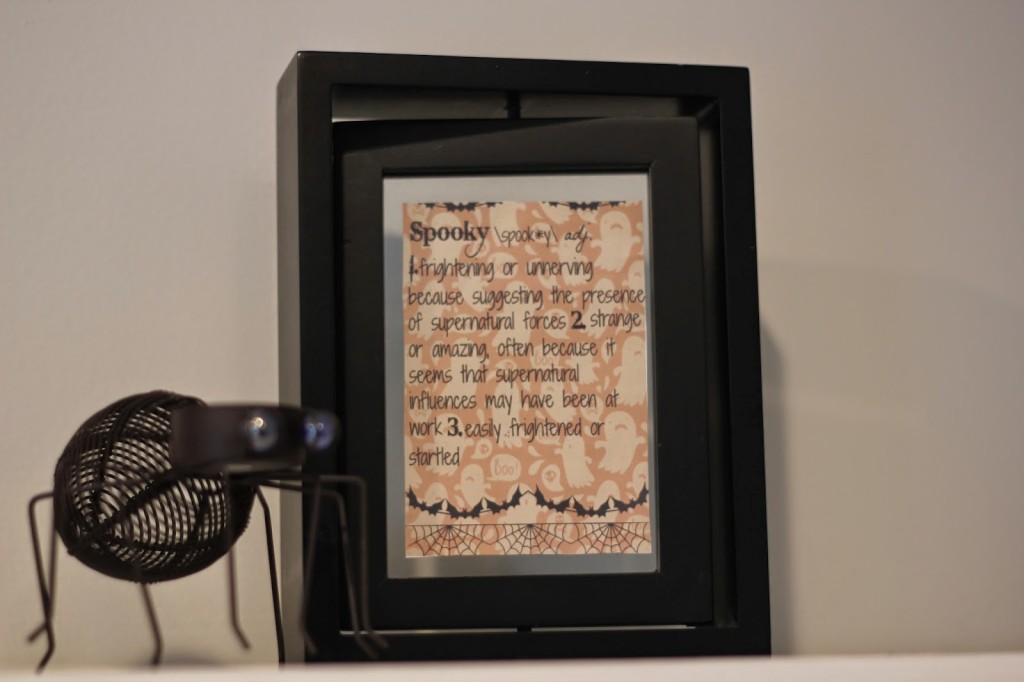 Spooky \spook*y\ adj.
1. frightening or unnerving
because suggesting the presence
of supernatural forces 2. strange
or amazing, often because it
seems that supernatural
influences may have been at
work 3. easily frightened or
startled
Boo!